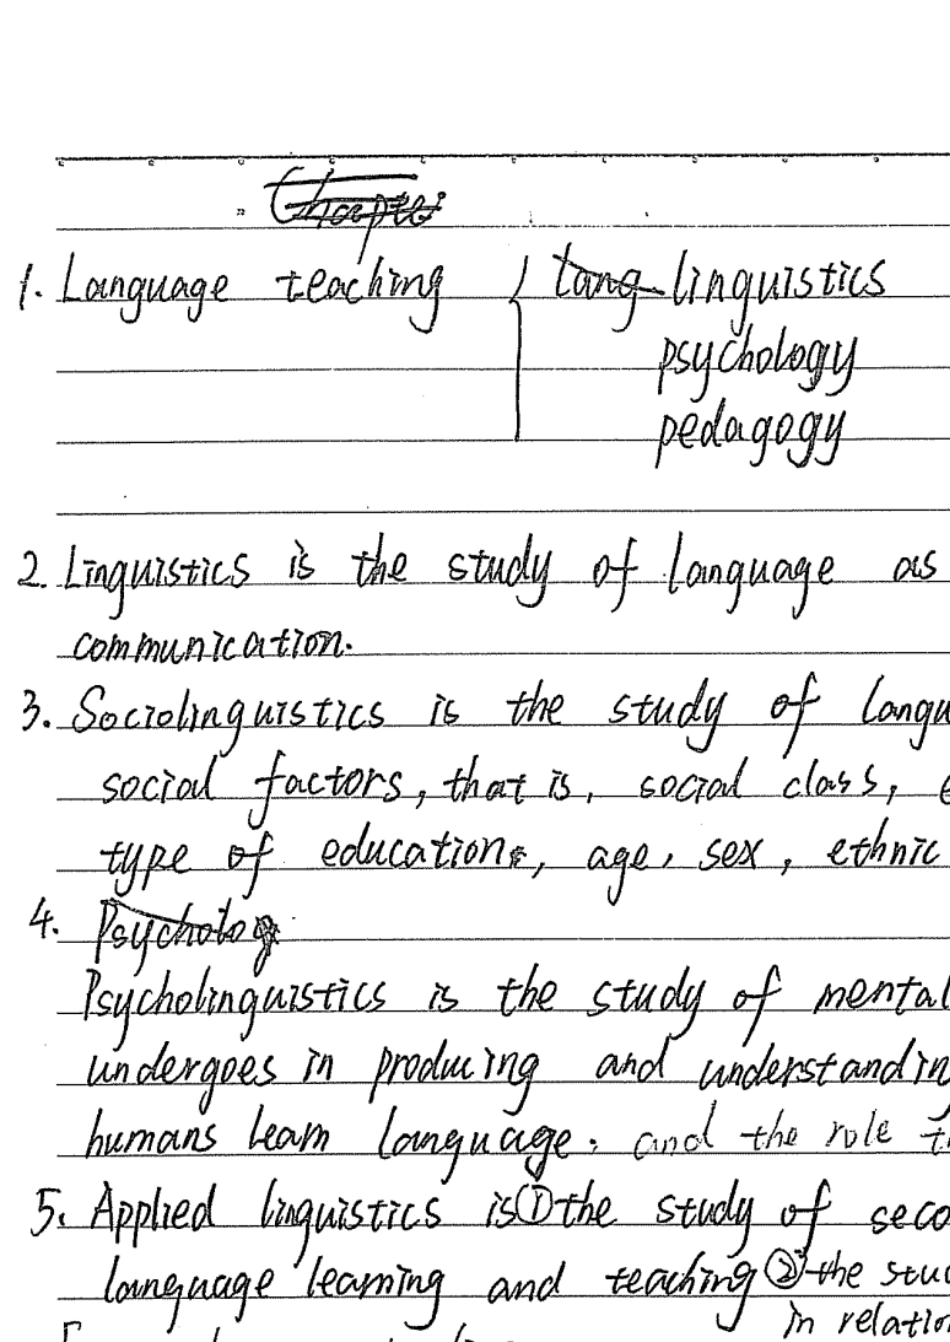 1. Language teaching { linguistics
psychology
pedagogy
2. Linguistics is the study of language as
communication.
3. Sociolinguistics is the study of langu
social factors, that is, social class, e
type of education, age, sex, ethnic
4. Psycholog
Psycholinguistics is the study of mental
undergoes in producing and understandin
humans learn language. and the role t
5. Applied linguistics is ① the study of seco
language learning and teaching ② the stud
in relation